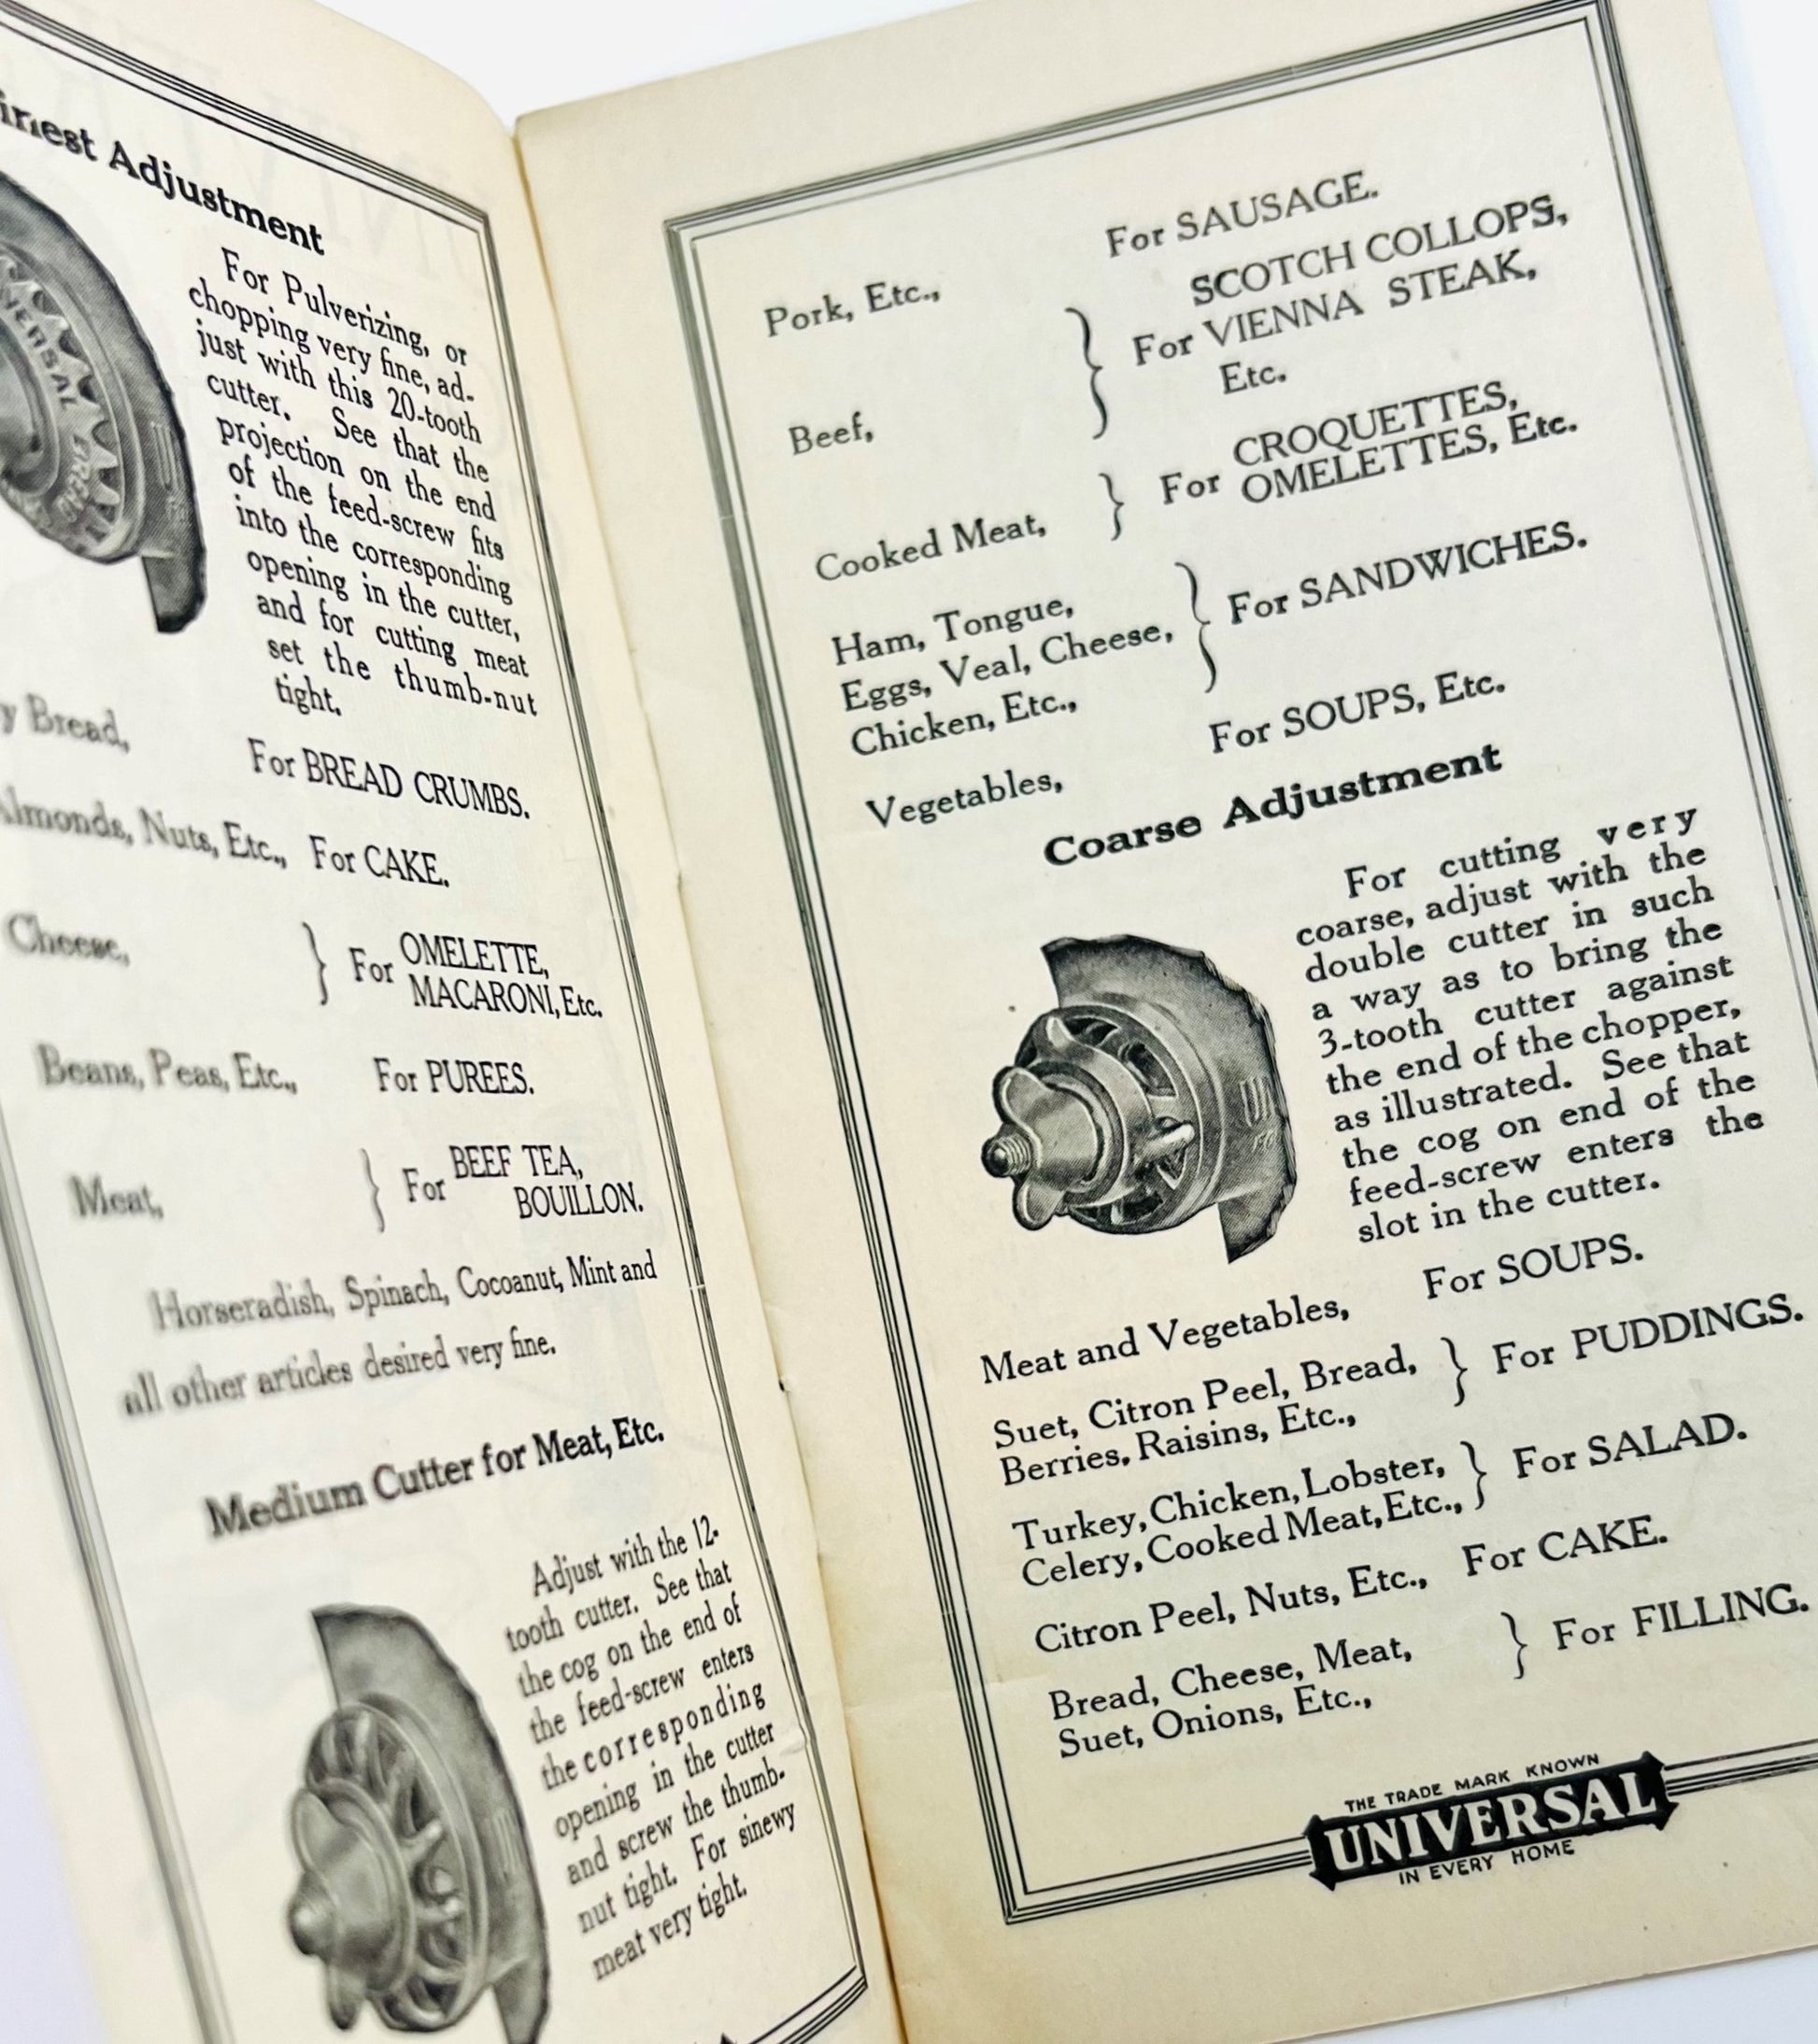 Finest Adjustment
For Pulverizing, or
chopping very fine, ad-
just with this 20-tooth
cutter. See that the
projection on the end
of the feed-screw fits
into the corresponding
opening in the cutter,
and for cutting meat
set the thumb-nut
tight.
Bread, For BREAD CRUMBS.
Almonds, Nuts, Etc., For CAKE.
Cheese, } For OMELETTE,
MACARONI, Etc.
Beans, Peas, Etc., For PUREES.
Meat, } For BEEF TEA,
BOUILLON.
Horseradish, Spinach, Cocoanut, Mint and
all other articles desired very fine.
Medium Cutter for Meat, Etc.
Adjust with the 12-
tooth cutter. See that
the cog on the end of
the feed-screw enters
the corresponding
opening in the cutter
and screw the thumb-
nut tight. For sinewy
meat very tight.
Pork, Etc., For SAUSAGE.
Beef, } For SCOTCH COLLOPS,
VIENNA STEAK,
Etc.
Cooked Meat, } For CROQUETTES,
OMELETTES, Etc.
Ham, Tongue,
Eggs, Veal, Cheese,
Chicken, Etc., } For SANDWICHES.
Vegetables, For SOUPS, Etc.
Coarse Adjustment
For cutting very
coarse, adjust with the
double cutter in such
a way as to bring the
3-tooth cutter against
the end of the chopper,
as illustrated. See that
the cog on end of the
feed-screw enters the
slot in the cutter.
Meat and Vegetables, For SOUPS.
Suet, Citron Peel, Bread,
Berries, Raisins, Etc., } For PUDDINGS.
Turkey, Chicken, Lobster,
Celery, Cooked Meat, Etc., } For SALAD.
Citron Peel, Nuts, Etc., For CAKE.
Bread, Cheese, Meat,
Suet, Onions, Etc., } For FILLING.
THE TRADE MARK KNOWN
UNIVERSAL
IN EVERY HOME